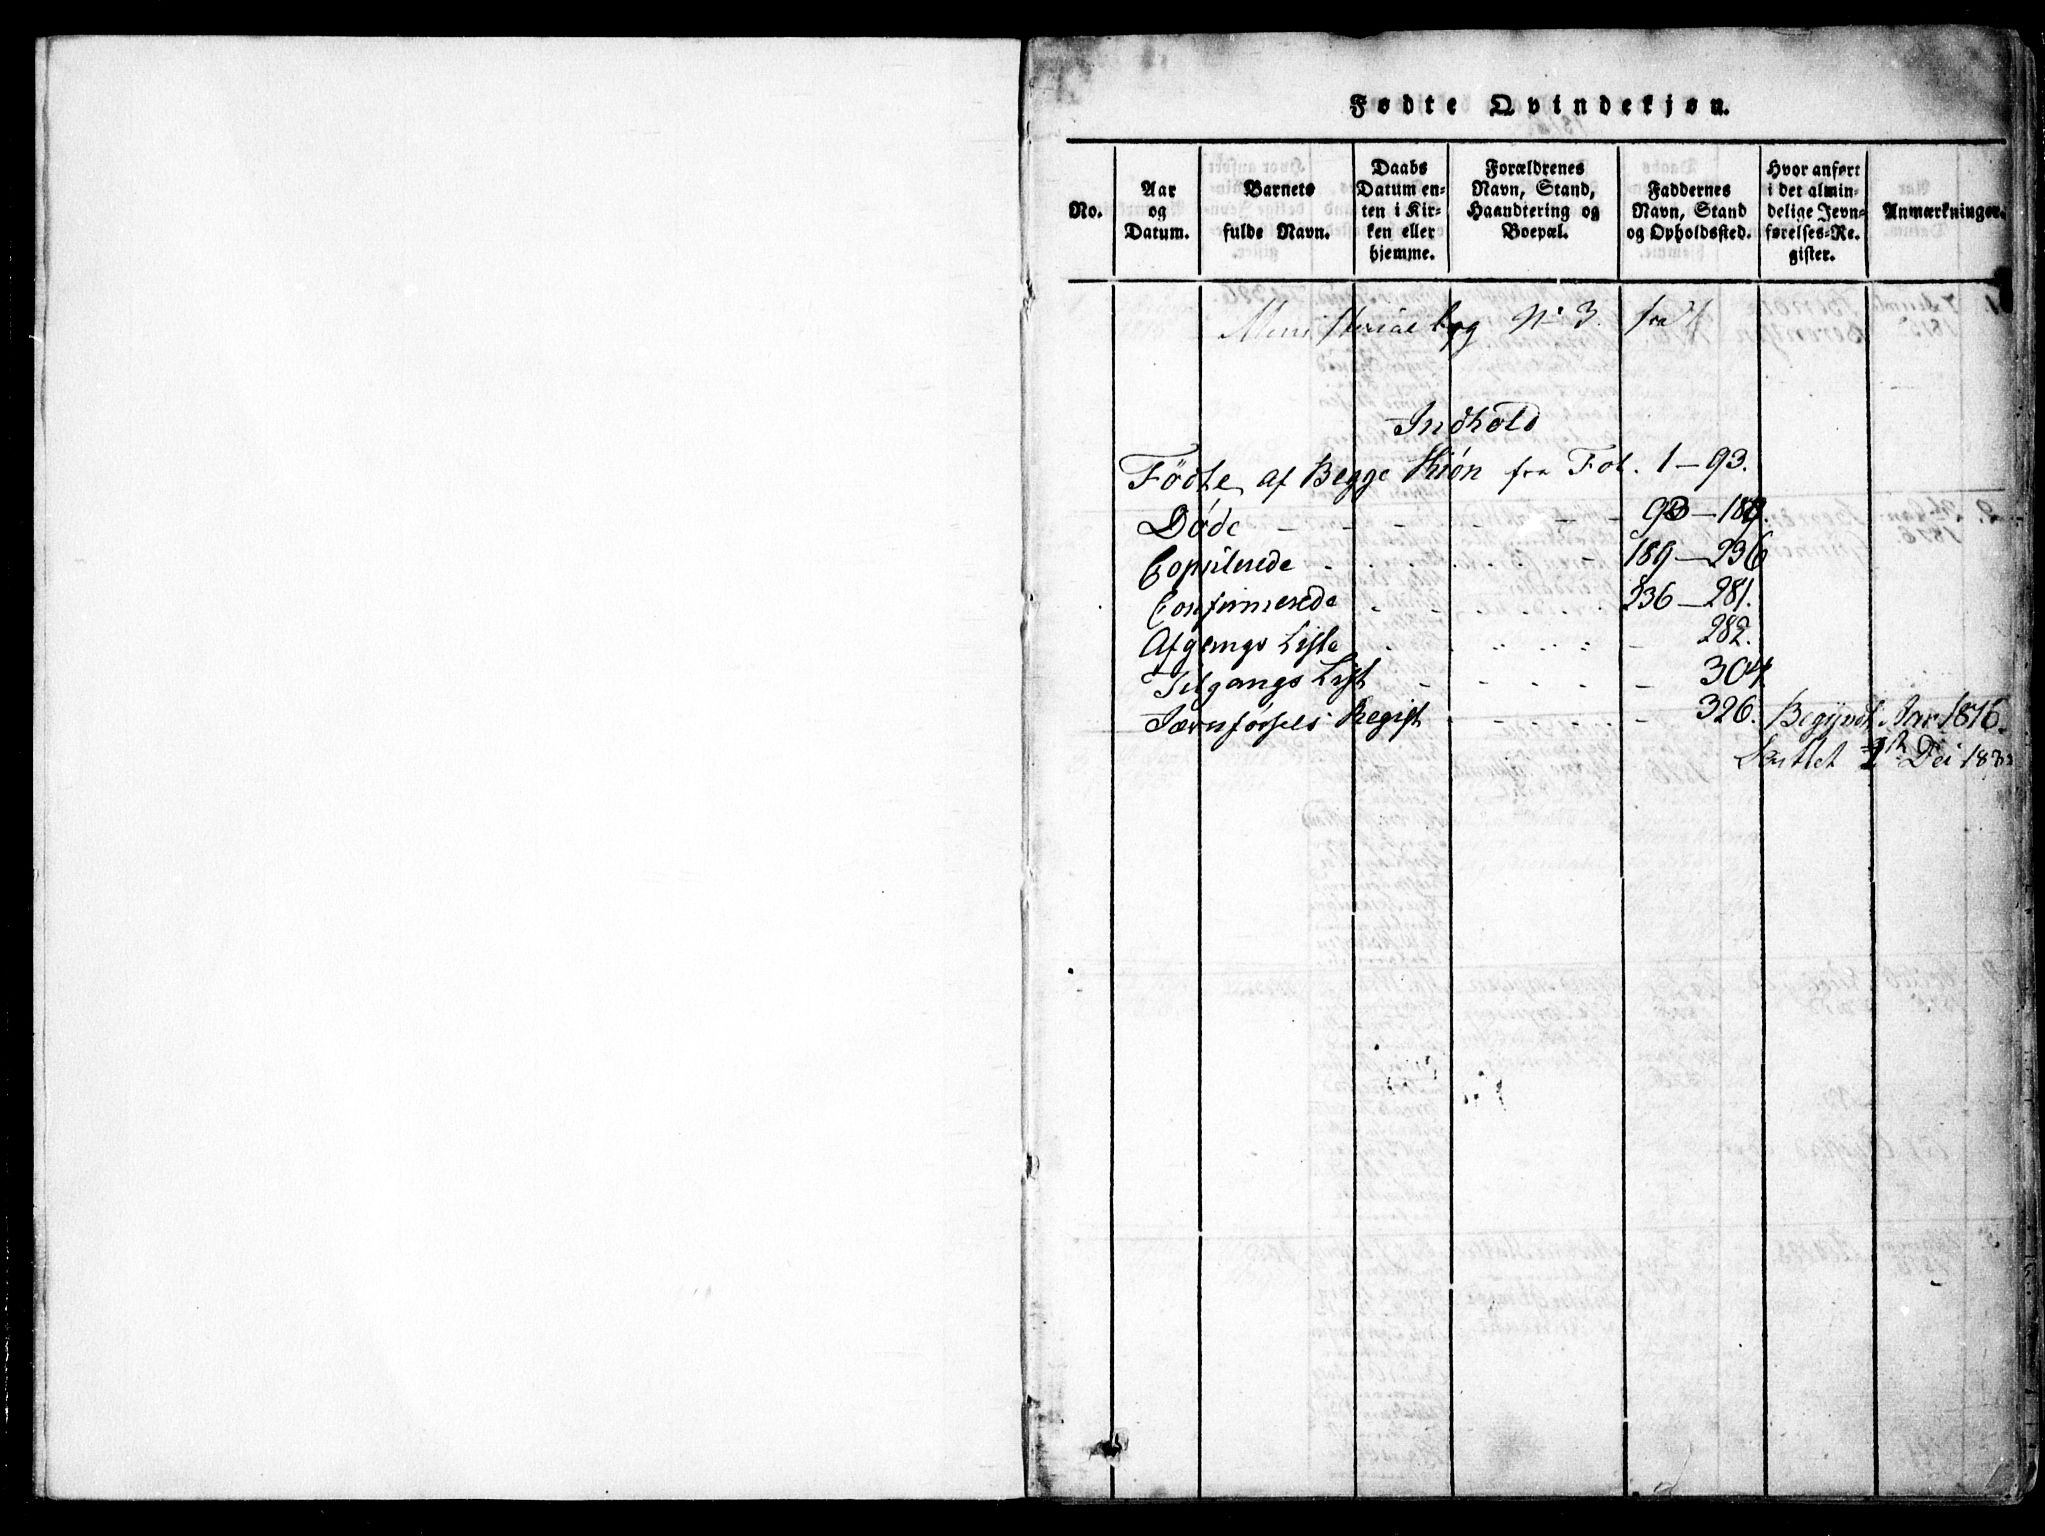 Fødte Qvindekjøn.
No.
Aar
og
Datum.
Barnets
fulde Navn.
Daabs
Datum en-
ten i Kir-
ken eller
hjemme.
Forældrenes
Navn, Stand,
Haandtering og
Boepæl.
Faddernes
Navn, Stand
og Opholdssted.
Hvor anført
i det almin-
delige Jevn-
førelses-Re-
gister.
Anmærkninger.
Ministerial bog No 3. fra
Indhold
Födte af Begge Kiön fra Fol. 1—93.
Døde 93—189.
Copulerede 189—236
Confirmerede 236—281.
Afgangs Liste 282.
Tilgangs List 304.
Jævnførsels Regist 326. Begyndt Aar 1816.
Sluttet